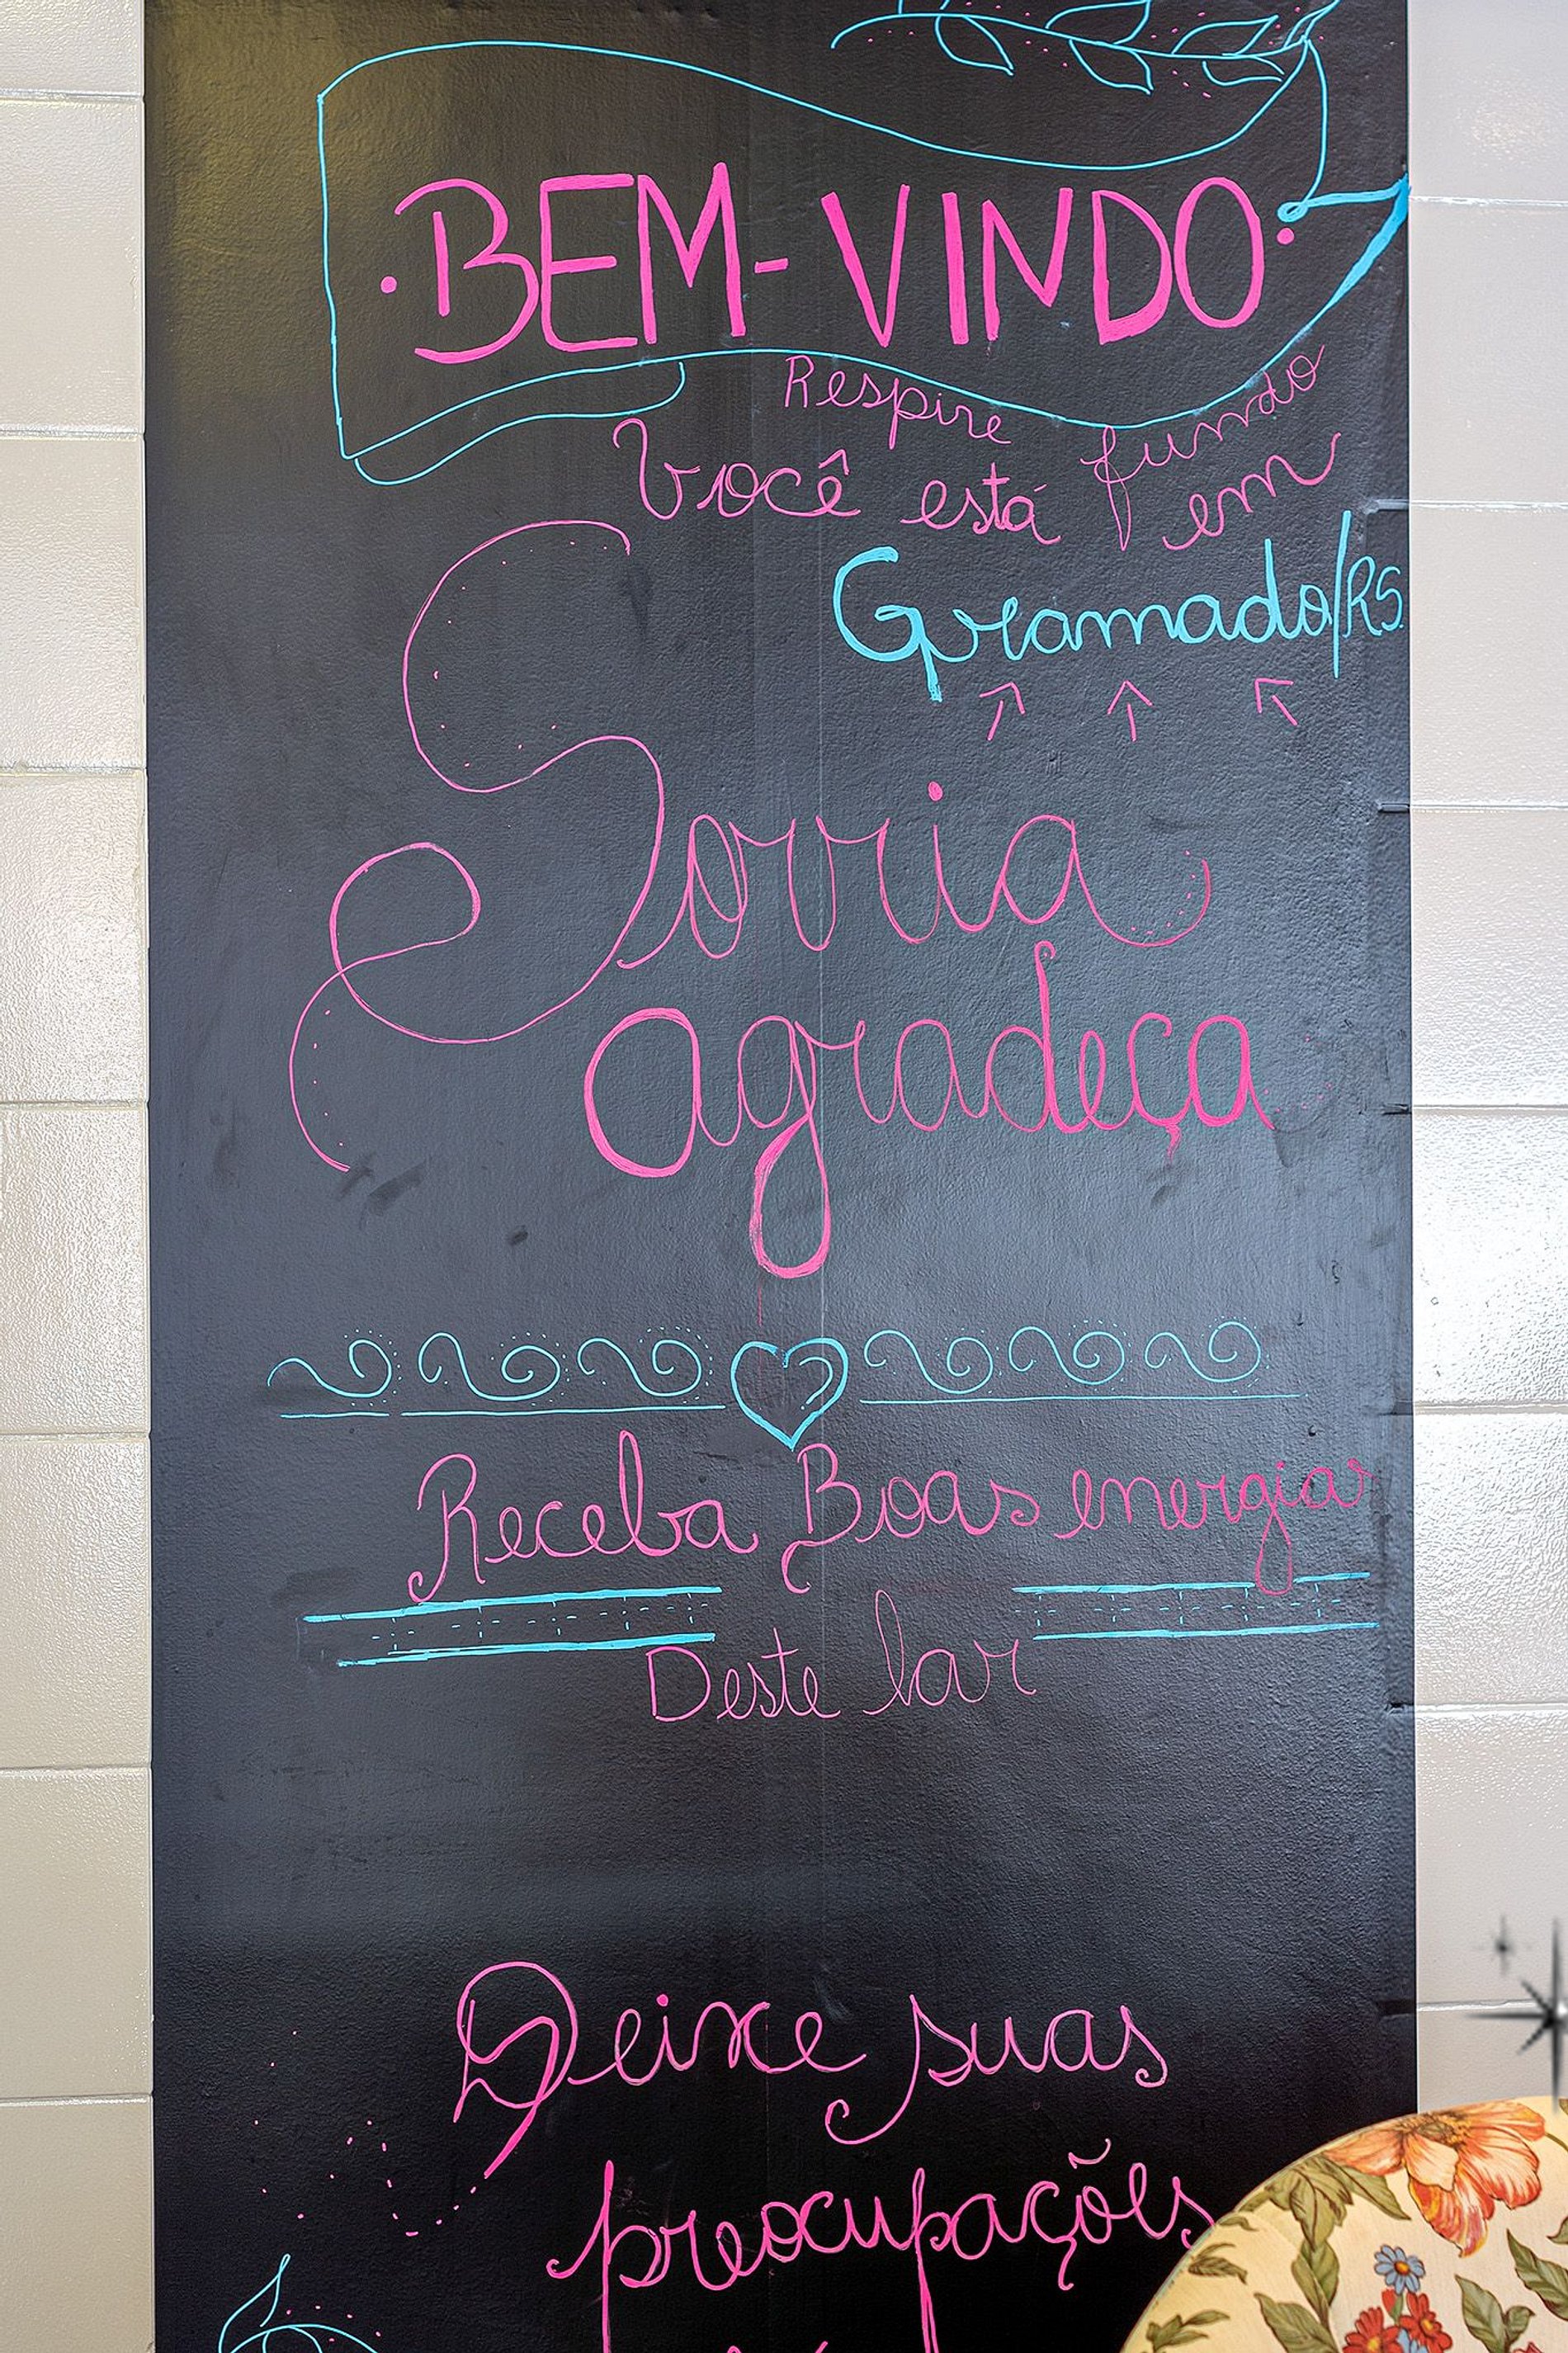 BEM-VINDO
Respire fundo
Você está em
Gramado/RS.
Sorria
agradeça
Receba Boas energias
Deste lar
Deixe suas
preocupações